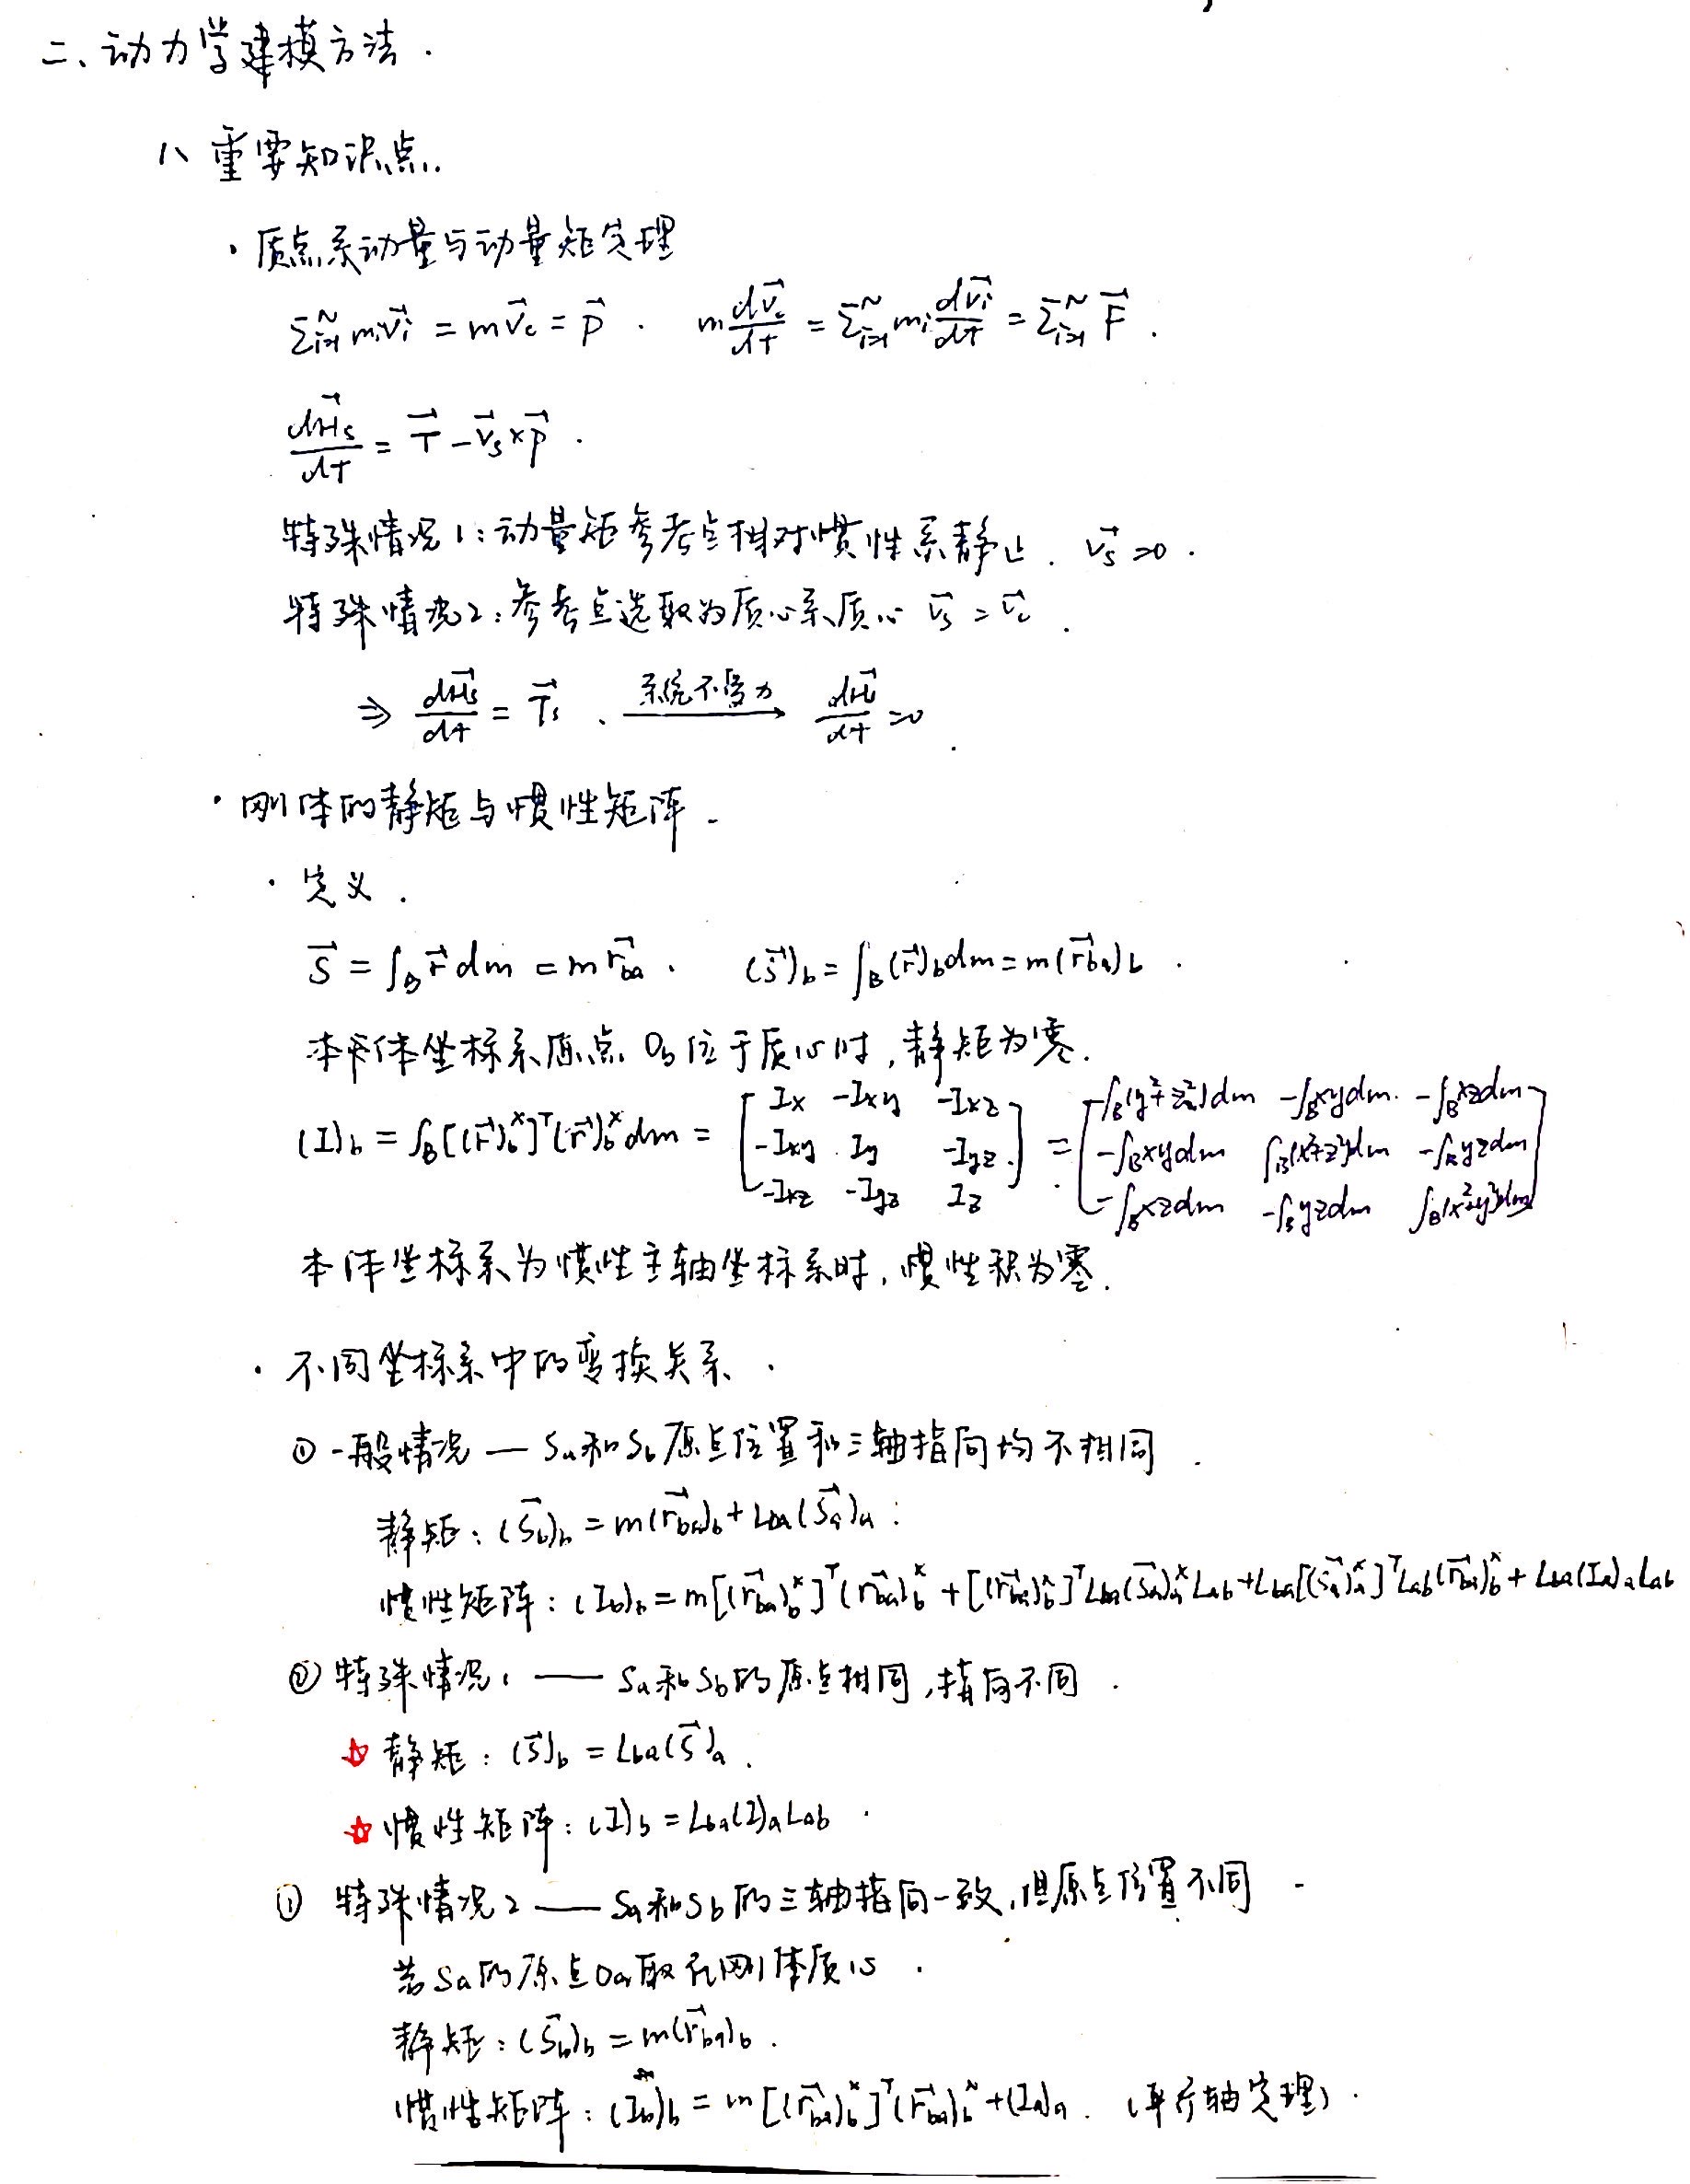 二、动力学建模方法.
1、重要知识点.
· 质点系动量与动量矩定理
$\sum_{i=1}^{N} m_i\vec{v_i} = m\vec{v_c} = \vec{p}$ . $m\frac{d\vec{v_c}}{dt} = \sum_{i=1}^{N} m_i\frac{d\vec{v_i}}{dt} = \sum_{i=1}^{N} \vec{F}$ .
$\frac{d\vec{H_s}}{dt} = \vec{T} - \vec{v_s} \times \vec{p}$ .
特殊情况1:动量矩参考点相对惯性系静止. $\vec{v_s}=0$ .
特殊情况2:参考点选取为质心系质心 $\vec{v_s}=\vec{v_c}$ .
$\Rightarrow \frac{d\vec{H_s}}{dt} = \vec{T_s}$ . $\xrightarrow{系统不受力} \frac{d\vec{H_s}}{dt}=0$ .
· 刚体的静矩与惯性矩阵.
· 定义.
$\vec{S} = \int_B \vec{r}dm = m\vec{r_{ba}}$ . $(\vec{S})_b = \int_B (\vec{r})_b dm = m(\vec{r_{ba}})_b$ .
体坐标系原点 $O_b$ 位于质心时,静矩为零.
$(I)_b = \int_B [(\vec{r})_b^{\times}]^T (\vec{r})_b^{\times} dm = \begin{bmatrix} I_x & -I_{xy} & -I_{xz} \\ -I_{xy} & I_y & -I_{yz} \\ -I_{xz} & -I_{yz} & I_z \end{bmatrix} = \begin{bmatrix} \int_B(y^2+z^2)dm & -\int_B xydm & -\int_B xzdm \\ -\int_B xydm & \int_B(x^2+z^2)dm & -\int_B yzdm \\ -\int_B xzdm & -\int_B yzdm & \int_B(x^2+y^2)dm \end{bmatrix}$
本体坐标系为惯性主轴坐标系时,惯性积为零.
· 不同坐标系中的变换关系.
① 一般情况 — $S_a$和$S_b$原点位置和三轴指向均不相同.
静矩:$(\vec{S_b})_b = m(\vec{r_{ba}})_b + L_{ba}(\vec{S_a})_a$ :
惯性矩阵:$(I_b)_b = m[(\vec{r_{ba}})_b^{\times}]^T(\vec{r_{ba}})_b^{\times} + [(\vec{r_{ba}})_b^{\times}]^T L_{ba}(\vec{S_a})_a^{\times} L_{ab} + L_{ba}[(\vec{S_a})_a^{\times}]^T L_{ab}(\vec{r_{ba}})_b^{\times} + L_{ba}(I_a)_a L_{ab}$
② 特殊情况1 —— $S_a$和$S_b$的原点相同,指向不同.
☆ 静矩:$(\vec{S})_b = L_{ba}(\vec{S})_a$ .
☆ 惯性矩阵:$(I)_b = L_{ba}(I)_a L_{ab}$ .
① 特殊情况2 —— $S_a$和$S_b$的三轴指向一致,但原点位置不同.
若$S_a$的原点$O_a$取在刚体质心.
静矩:$(\vec{S_b})_b = m(\vec{r_{ba}})_b$ .
惯性矩阵:$(I_b)_b = m[(\vec{r_{ba}})_b^{\times}]^T(\vec{r_{ba}})_b^{\times} + (I_a)_a$ . (平行轴定理).